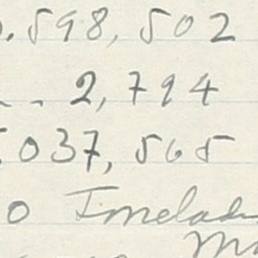 .598,502
2,794
037,565
0 Imelad